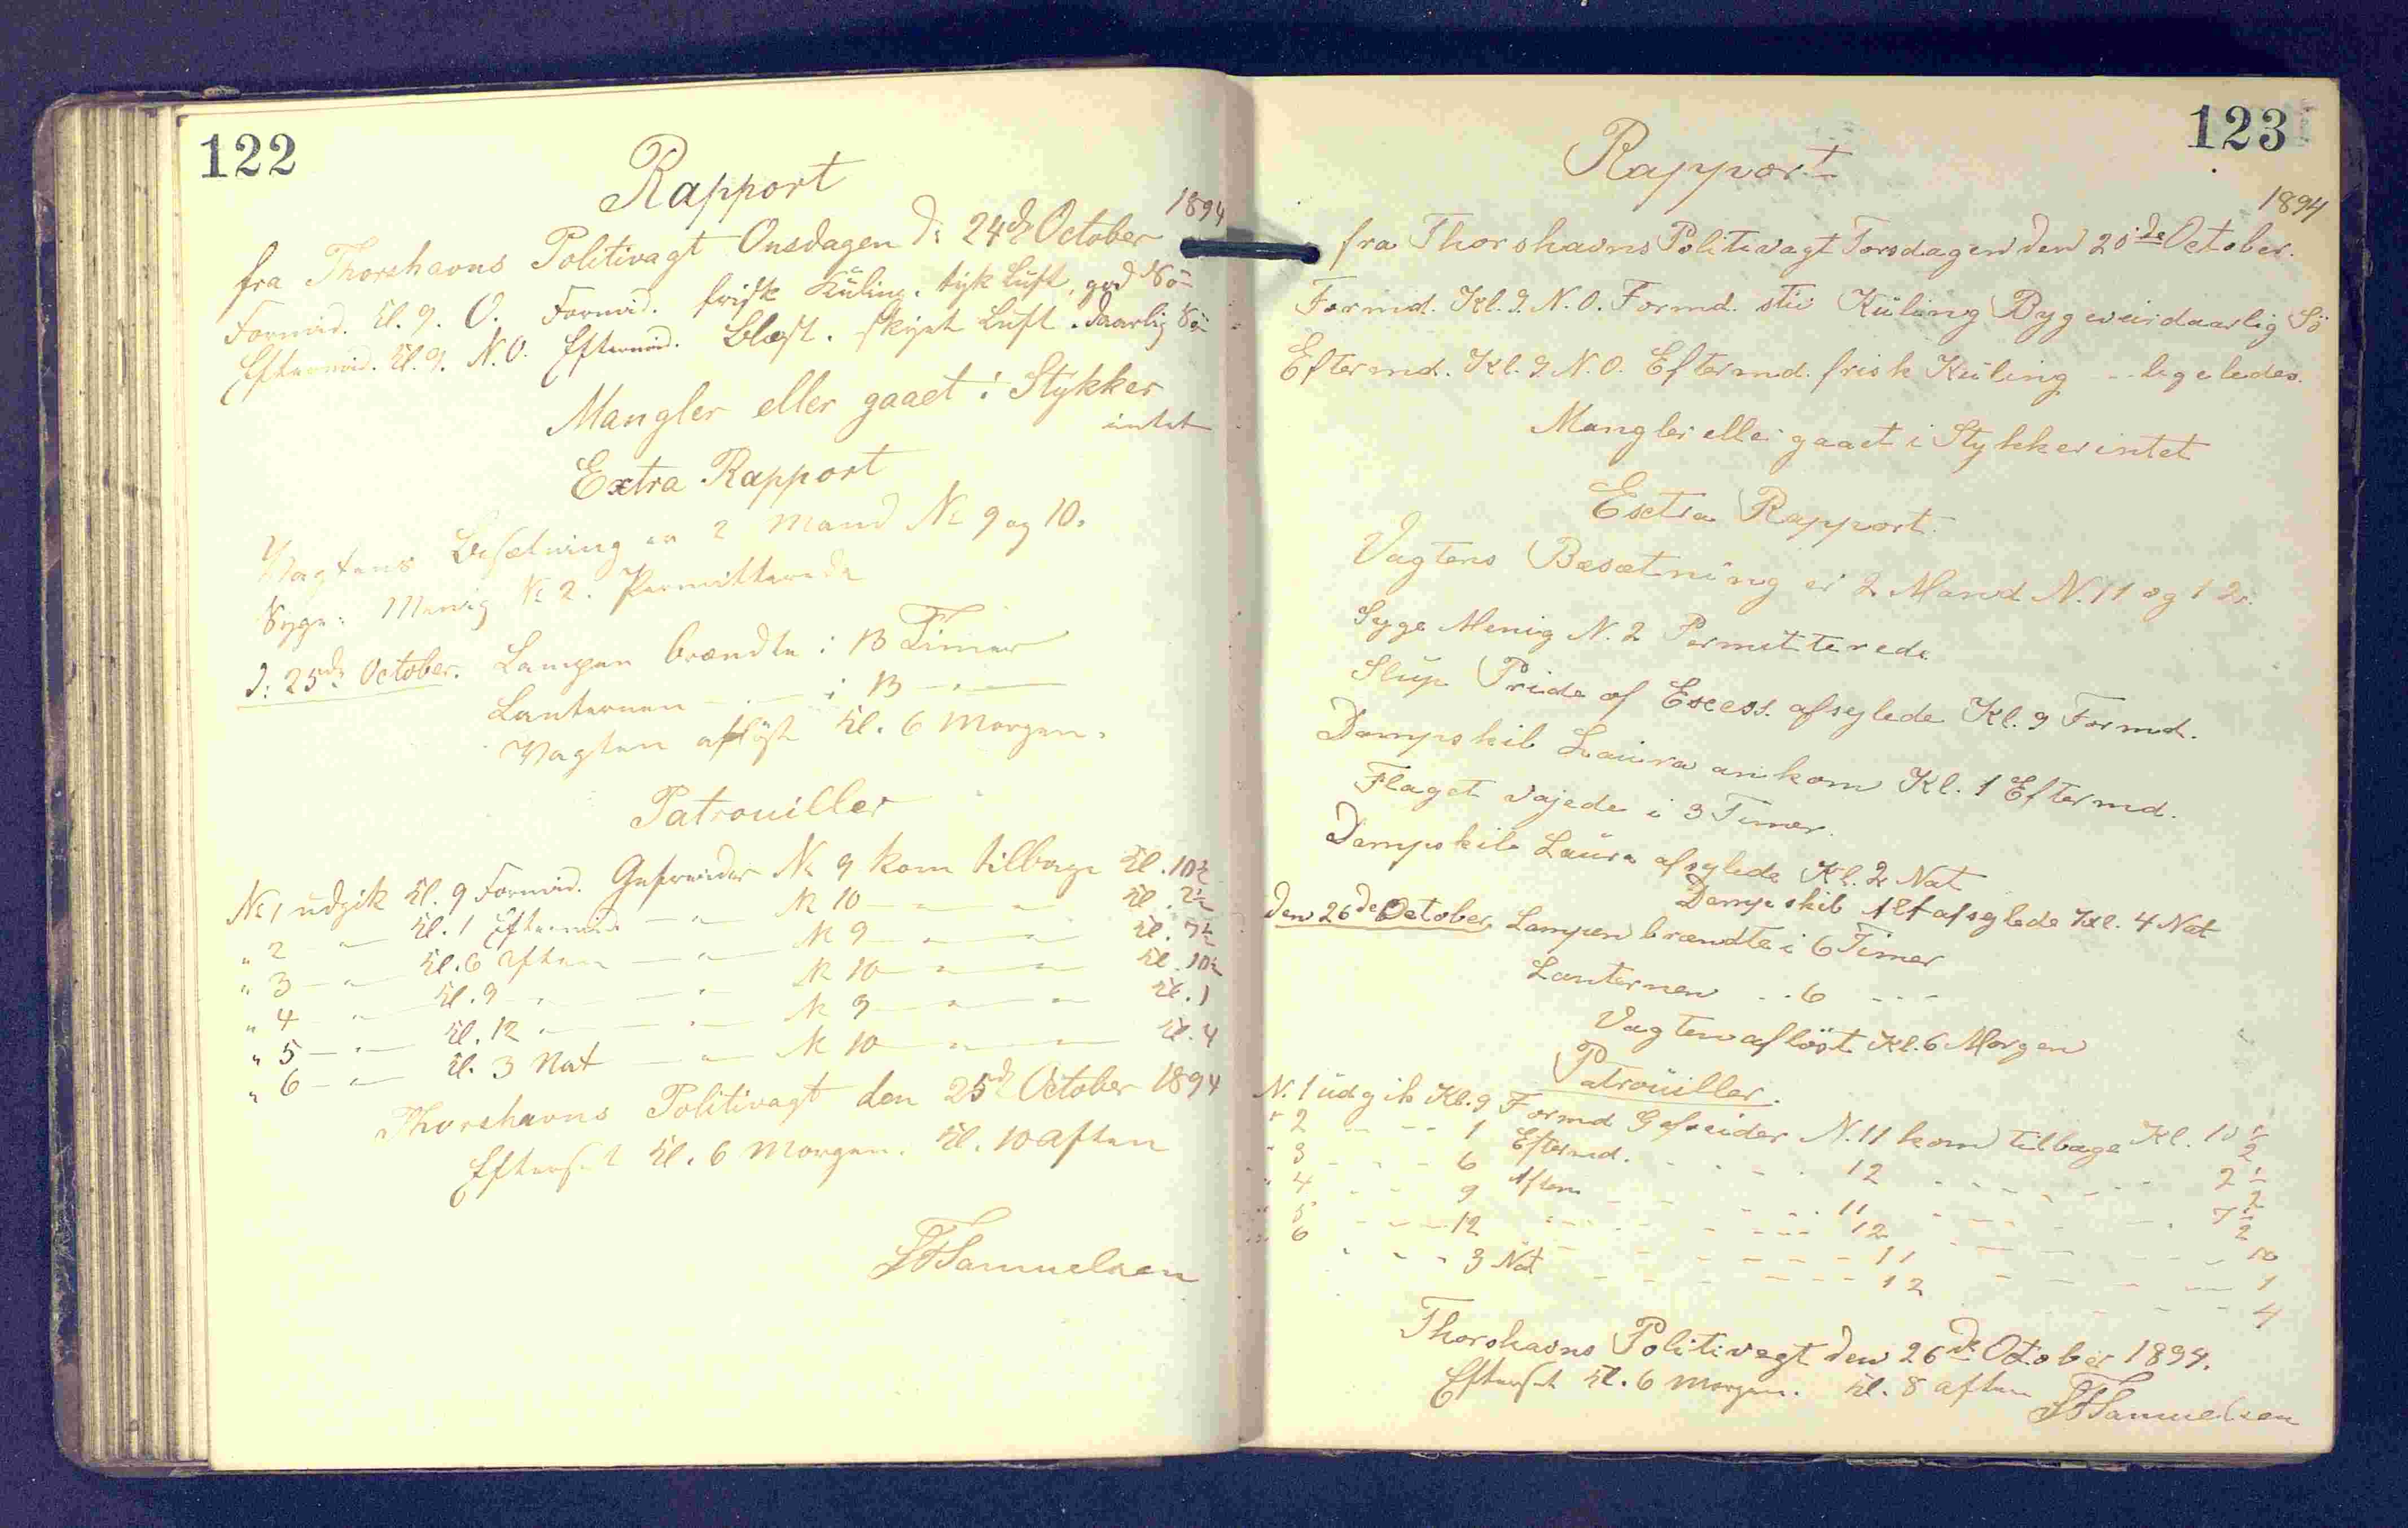 122
Rapport
1894
fra Thorshavns Politivagt Onsdagen d: 24de October
Formid. Kl. 9. O. Formid. frisk Küling. tyk Luft, god Sö
Eftermid. Kl. 9. N.O. Eftermid. Blæst. skyet Luft. daarlig Sö
Mangler eller gaaet i Stykker
intet
Extra Rapport
Vagtens Besætning er 2 Mand No 9 og 10.
Syge: Menig No 2. Permitterede
d: 25de October. Lampen brændte i 13 Timer
Lanternen — " — i 13 — " —
Vagten aflöst Kl. 6 Morgen.
Patrouiller
No 1 udgik Kl. 9 Formid. Gefreider No 9 kom tilbage Kl. 10½
" 2 — " — Kl. 1 Eftermid. — " — No 10 — " — " — Kl. 2½
" 3 — " — Kl. 6 Aften — " — No 9 — " — " — Kl. 7½
" 4 — " — Kl. 9 — " — — " — No 10 — " — " — Kl. 10½
" 5 — " — Kl. 12 — " — — " — No 9 — " — " — Kl. 1
" 6 — " — Kl. 3 Nat — " — No 10 — " — " — Kl. 4
Thorshavns Politivagt den 25de October 1894
Efterset Kl. 6 Morgen. Kl. 10 Aften
Samuelsen
123
Rapport
1894
fra Thorshavns Politivagt Torsdagen den 25de October.
Formd. Kl. 9. N.O. Formd. stiv Küling Bygeveir daarlig Sö
Eftermd. Kl. 9 N.O. Eftermd. frisk Küling - - ligeledes.
Mangler eller gaaet i Stykker intet
Extra Rapport.
Vagtens Besætning er 2 Mand N. 11 og 12.
Syge Menig N. 2 Permitterede
Slup Pride of Essex. afseglede Kl. 9 Formd.
Dampskib Laura ankom Kl. 1 Eftermd.
Flaget vajede i 3 Timer.
Dampskib Laura afseglede Kl. 2 Nat
Dampskib Alf afseglede Kl. 4 Nat
Den 26de October. Lampen brændte i 6 Timer
Lanternen - - 6 - - -
Vagten aflöst Kl. 6 Morgen
Patrouiller.
N. 1 udgik Kl. 9 Formd Gefreider N. 11 kom tilbage Kl. 10½
" 2 - - - - 1 Eftermd. - - - - 12 - - - - - 2½
" 3 - - - 6 Aften - - - - 11 - - - - - 7½
" 4 - - 9 - - - - - - 12 - - - - - 10
" 5 - - - 12 - - - - - - 11 - - - - - 1
" 6 - - - 3 Nat - - - - - 12 - - - - - 4
Thorshavns Politivagt den 26de October 1894.
Efterset Kl. 6 Morgen. Kl. 8 Aften
Samuelsen